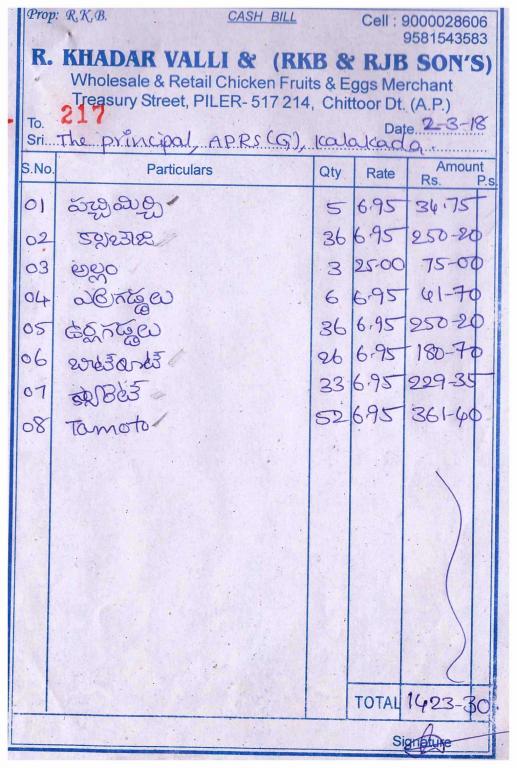 Prop: R,K,B.
CASH BILL
Cell : 9000028606
9581543583
R. KHADAR VALLI & (RKB & RJB SON'S)
Wholesale & Retail Chicken Fruits & Eggs Merchant
Treasury Street, PILER- 517 214, Chittoor Dt. (A.P.)
217
To. Date. 2-3-18
Sri. The principal, APRS(G), Kalakada.
S.No. Particulars Qty Rate Amount Rs. P.s.
01 పచ్చిమిర్చి 5 6.95 34.75
02 36 6.95 250-20
03 అల్లం 3 25-00 75-00
04 ఎర్రగడ్డలు 6 6.95 41-70
05 ఉర్లగడ్డలు 36 6.95 250-20
06 26 6.95 180-70
07 33 6.95 229-35
08 Tamoto 52 6.95 361-40
TOTAL 1423-30
Signature